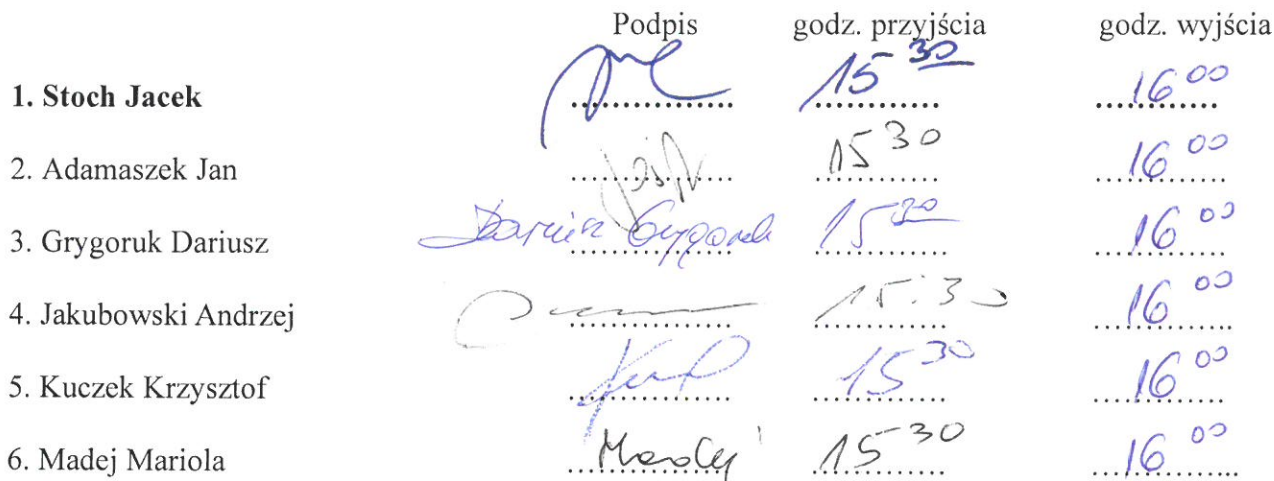 Podpis godz. przyjścia godz. wyjścia
1. Stoch Jacek .............. 15 30 16 00
2. Adamaszek Jan .............. 15 30 16 00
3. Grygoruk Dariusz Dariusz Grygoruk 15 30 16 00
4. Jakubowski Andrzej .............. 15:30 16 00
5. Kuczek Krzysztof .............. 15 30 16 00
6. Madej Mariola Madej 15 30 16 00